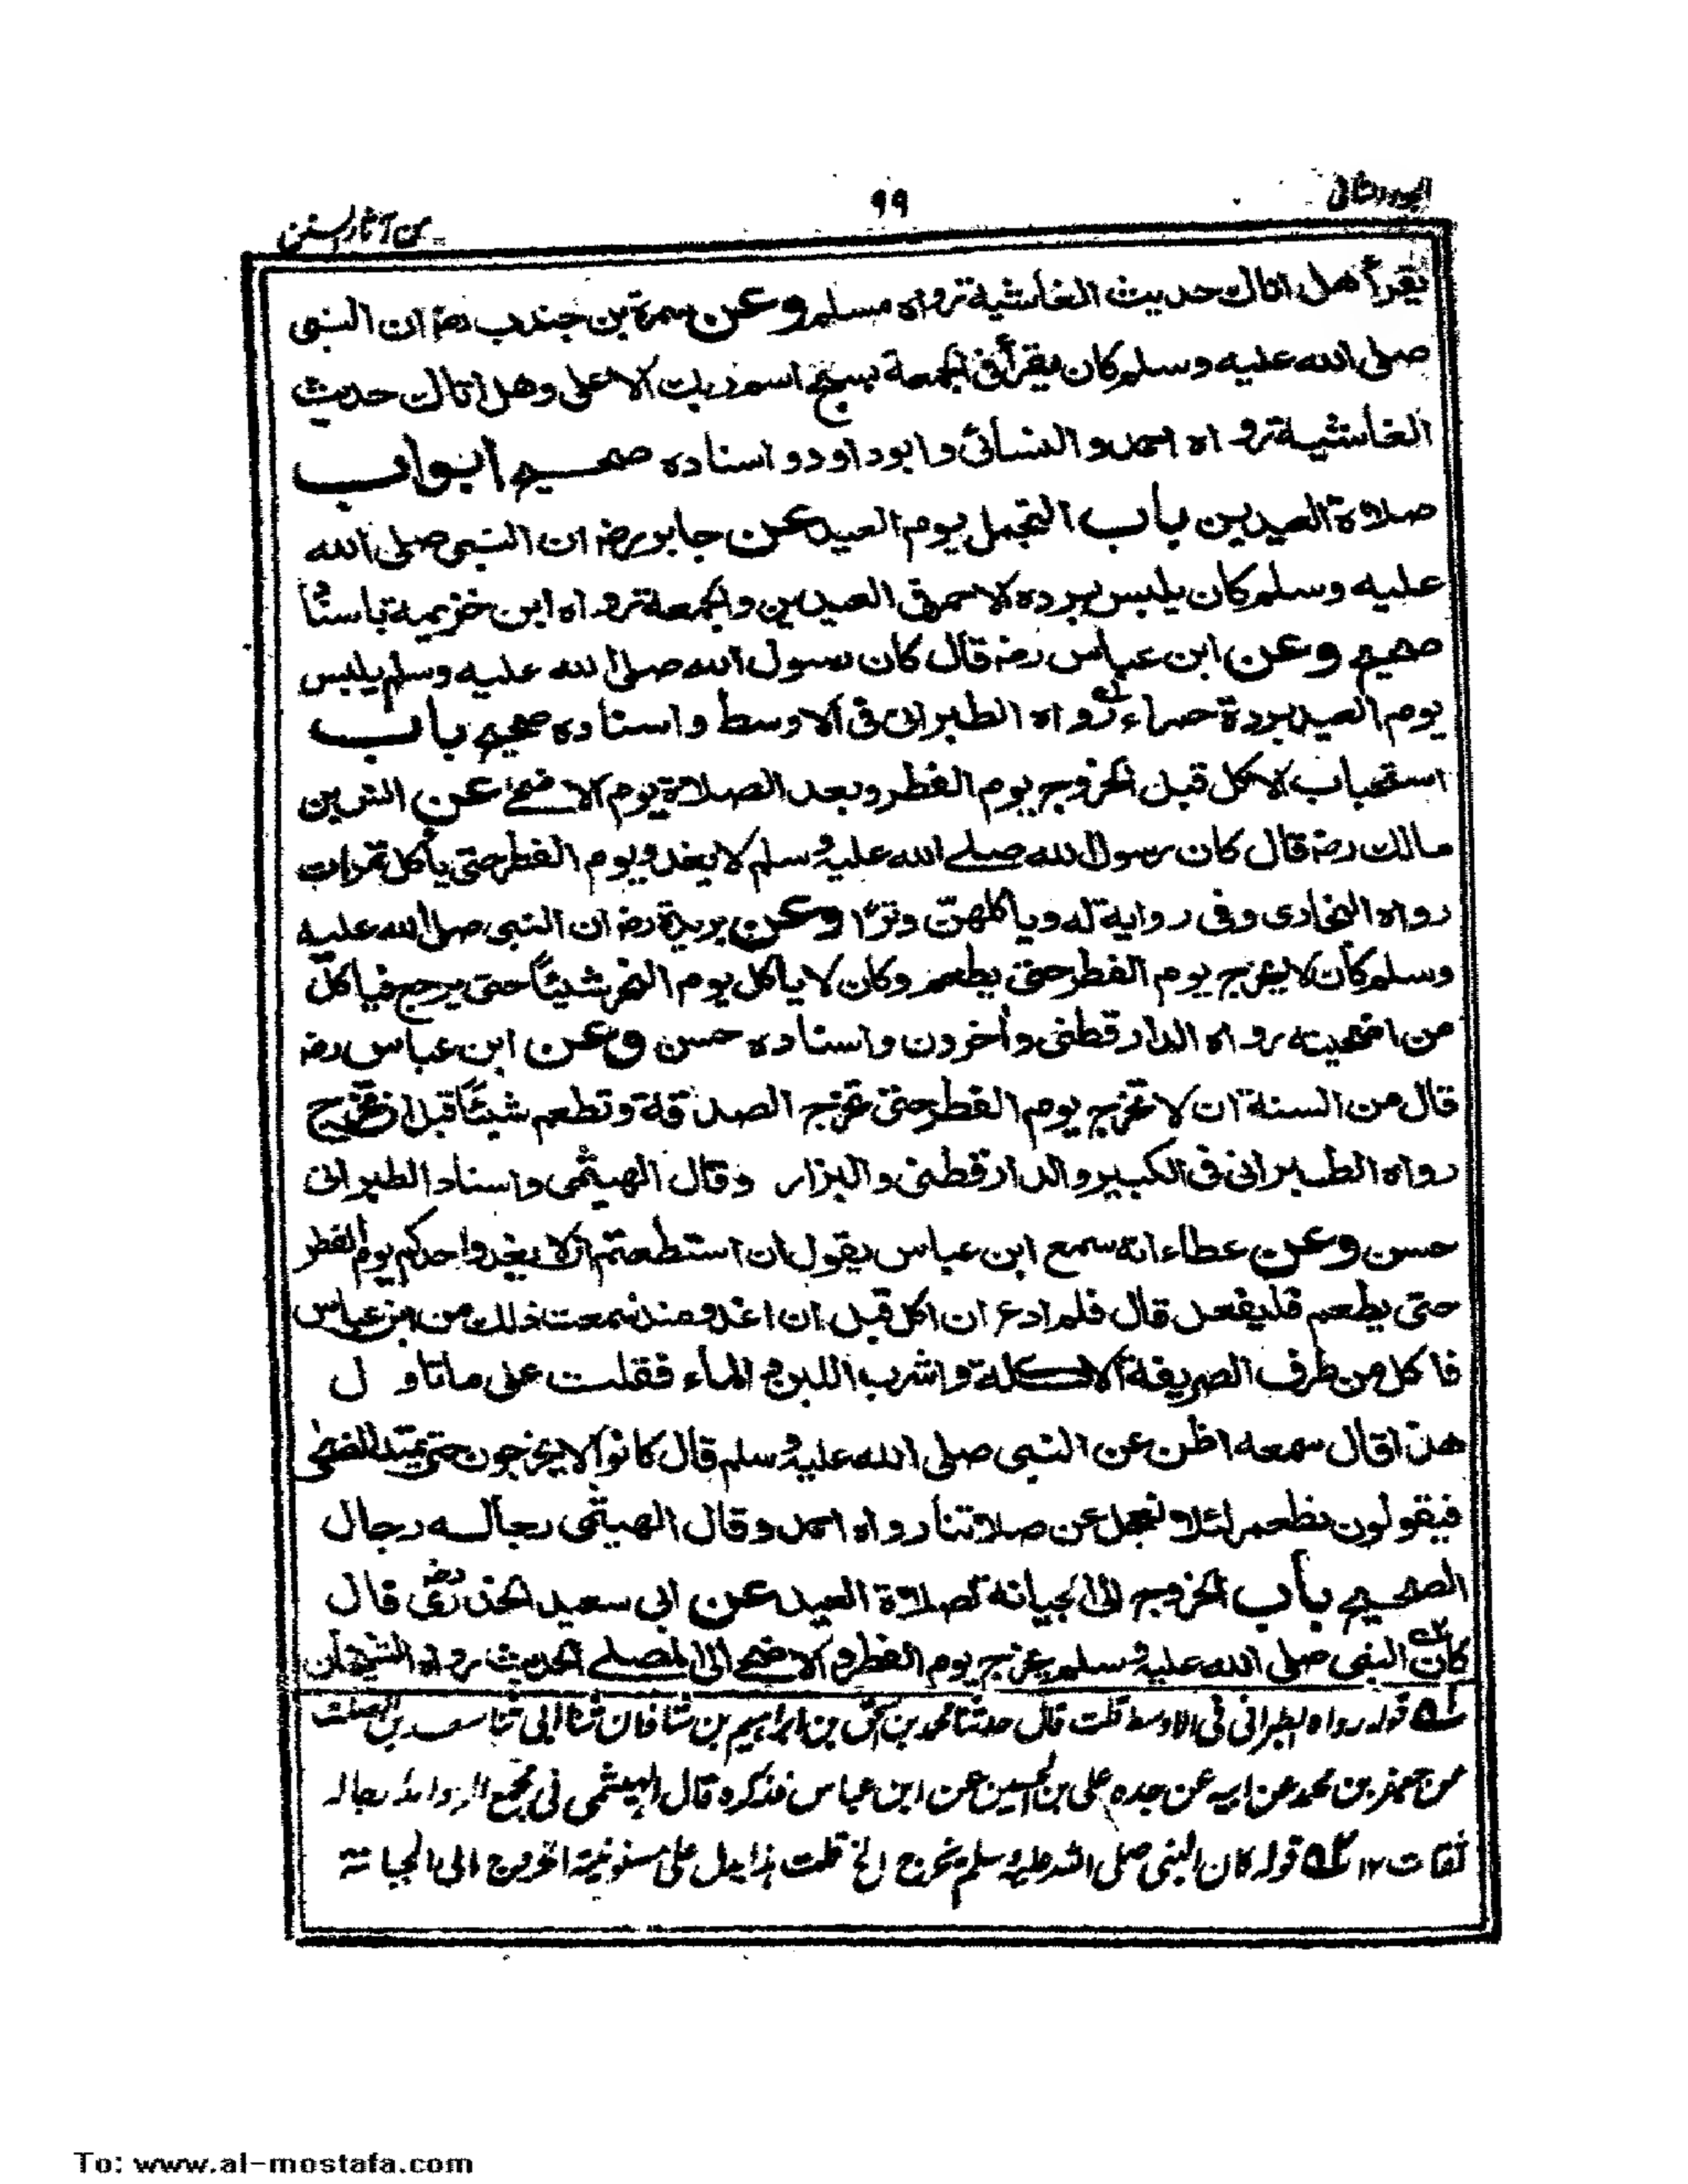 الجزء الثاني
٩٩
من آثار السنن
يقرأ هل اتاك حديث الغاشية رواه مسلم وعن سمرة بن جندب رضـ ان النبى
صلى الله عليه وسلم كان يقرأ فى الجمعة بسبح اسم ربك الاعلى وهل اتاك حديث
الغاشية رواه احمد والنسائى وابوداود واسناده صحيح ابواب
صلاة العيدين باب التجمل يوم العيد عن جابر رضـ ان النبى صلى الله
عليه وسلم كان يلبس برده الاحمر فى العيدين والجمعة رواه ابن خزيمة باسناد
صحيح وعن ابن عباس رضـ قال كان رسول الله صلى الله عليه وسلم يلبس
يوم العيد بردة حمراء رواه الطبرانى فى الاوسط واسناده صحيح باب
استحباب الاكل قبل الخروج يوم الفطر وبعد الصلاة يوم الاضحى عن انس بن
مالك رضـ قال كان رسول الله صلے الله عليه وسلم لا يغدو يوم الفطر حتى يأكل تمرات
رواه البخارى وفى رواية له ويأكلهنّ وترًا وعن بريدة رضـ ان النبى صلى الله عليه
وسلم كان لا يخرج يوم الفطر حتى يطعم وكان لا ياكل يوم النحر شيئًا حتى يرجع فياكل
من اضحيته رواه الدارقطنى وأخرون واسناده حسن وعن ابن عباس رضـ
قال من السنة ان لا تخرج يوم الفطر حتى تخرج الصدقة وتطعم شيئًا قبل ان تخرج
رواه الطبرانى فى الكبير والدارقطنى والبزار وقال الهيثمى واسناد الطبرانى
حسن وعن عطاء انه سمع ابن عباس يقول ان استطعتم ان لا يغدو احدكم يوم الفطر
حتى يطعم فليفعل قال فلم ادع ان اكل قبل ان اغدو منذ سمعت ذلك من ابن عباس
فاكل من طرف الصريفة الاكلة واشرب اللبن و الماء فقلت على ماتاول
هذا قال سمعه اظن عن النبى صلى الله عليه وسلم قال كانوا لا يخرجون حتى يمتد الضحى
فيقولون نطعم لئلا نعجل عن صلاتنا رواه احمد وقال الهيثمى رجاله رجال
الصحيح باب الخروج الى الجبانة لصلاة العيد عن ابى سعيد الخدرى رضـ قال
كان النبى صلى الله عليه وسلم يخرج يوم الفطر والاضحے الى المصلے الحديث رواه الشيخان
١ـه قوله رواه الطبرانى فى الاوسط قلت قال حدثنا محمد بن اسحق بن ابراهيم بن شاذان ثنا ابى ثنا سعد بن الصلت
عن جعفر بن محمد عن ابيه عن جده على بن الحسين عن ابن عباس فذكره قال الهيثمى فى مجمع الزوائد رجاله
ثقات ١٢ ٢ـه قوله كان النبى صلى الله عليه وسلم يخرج الخ قلت هذا يدل على مسنونية الخروج الى الجبانة
To: www.al-mostafa.com